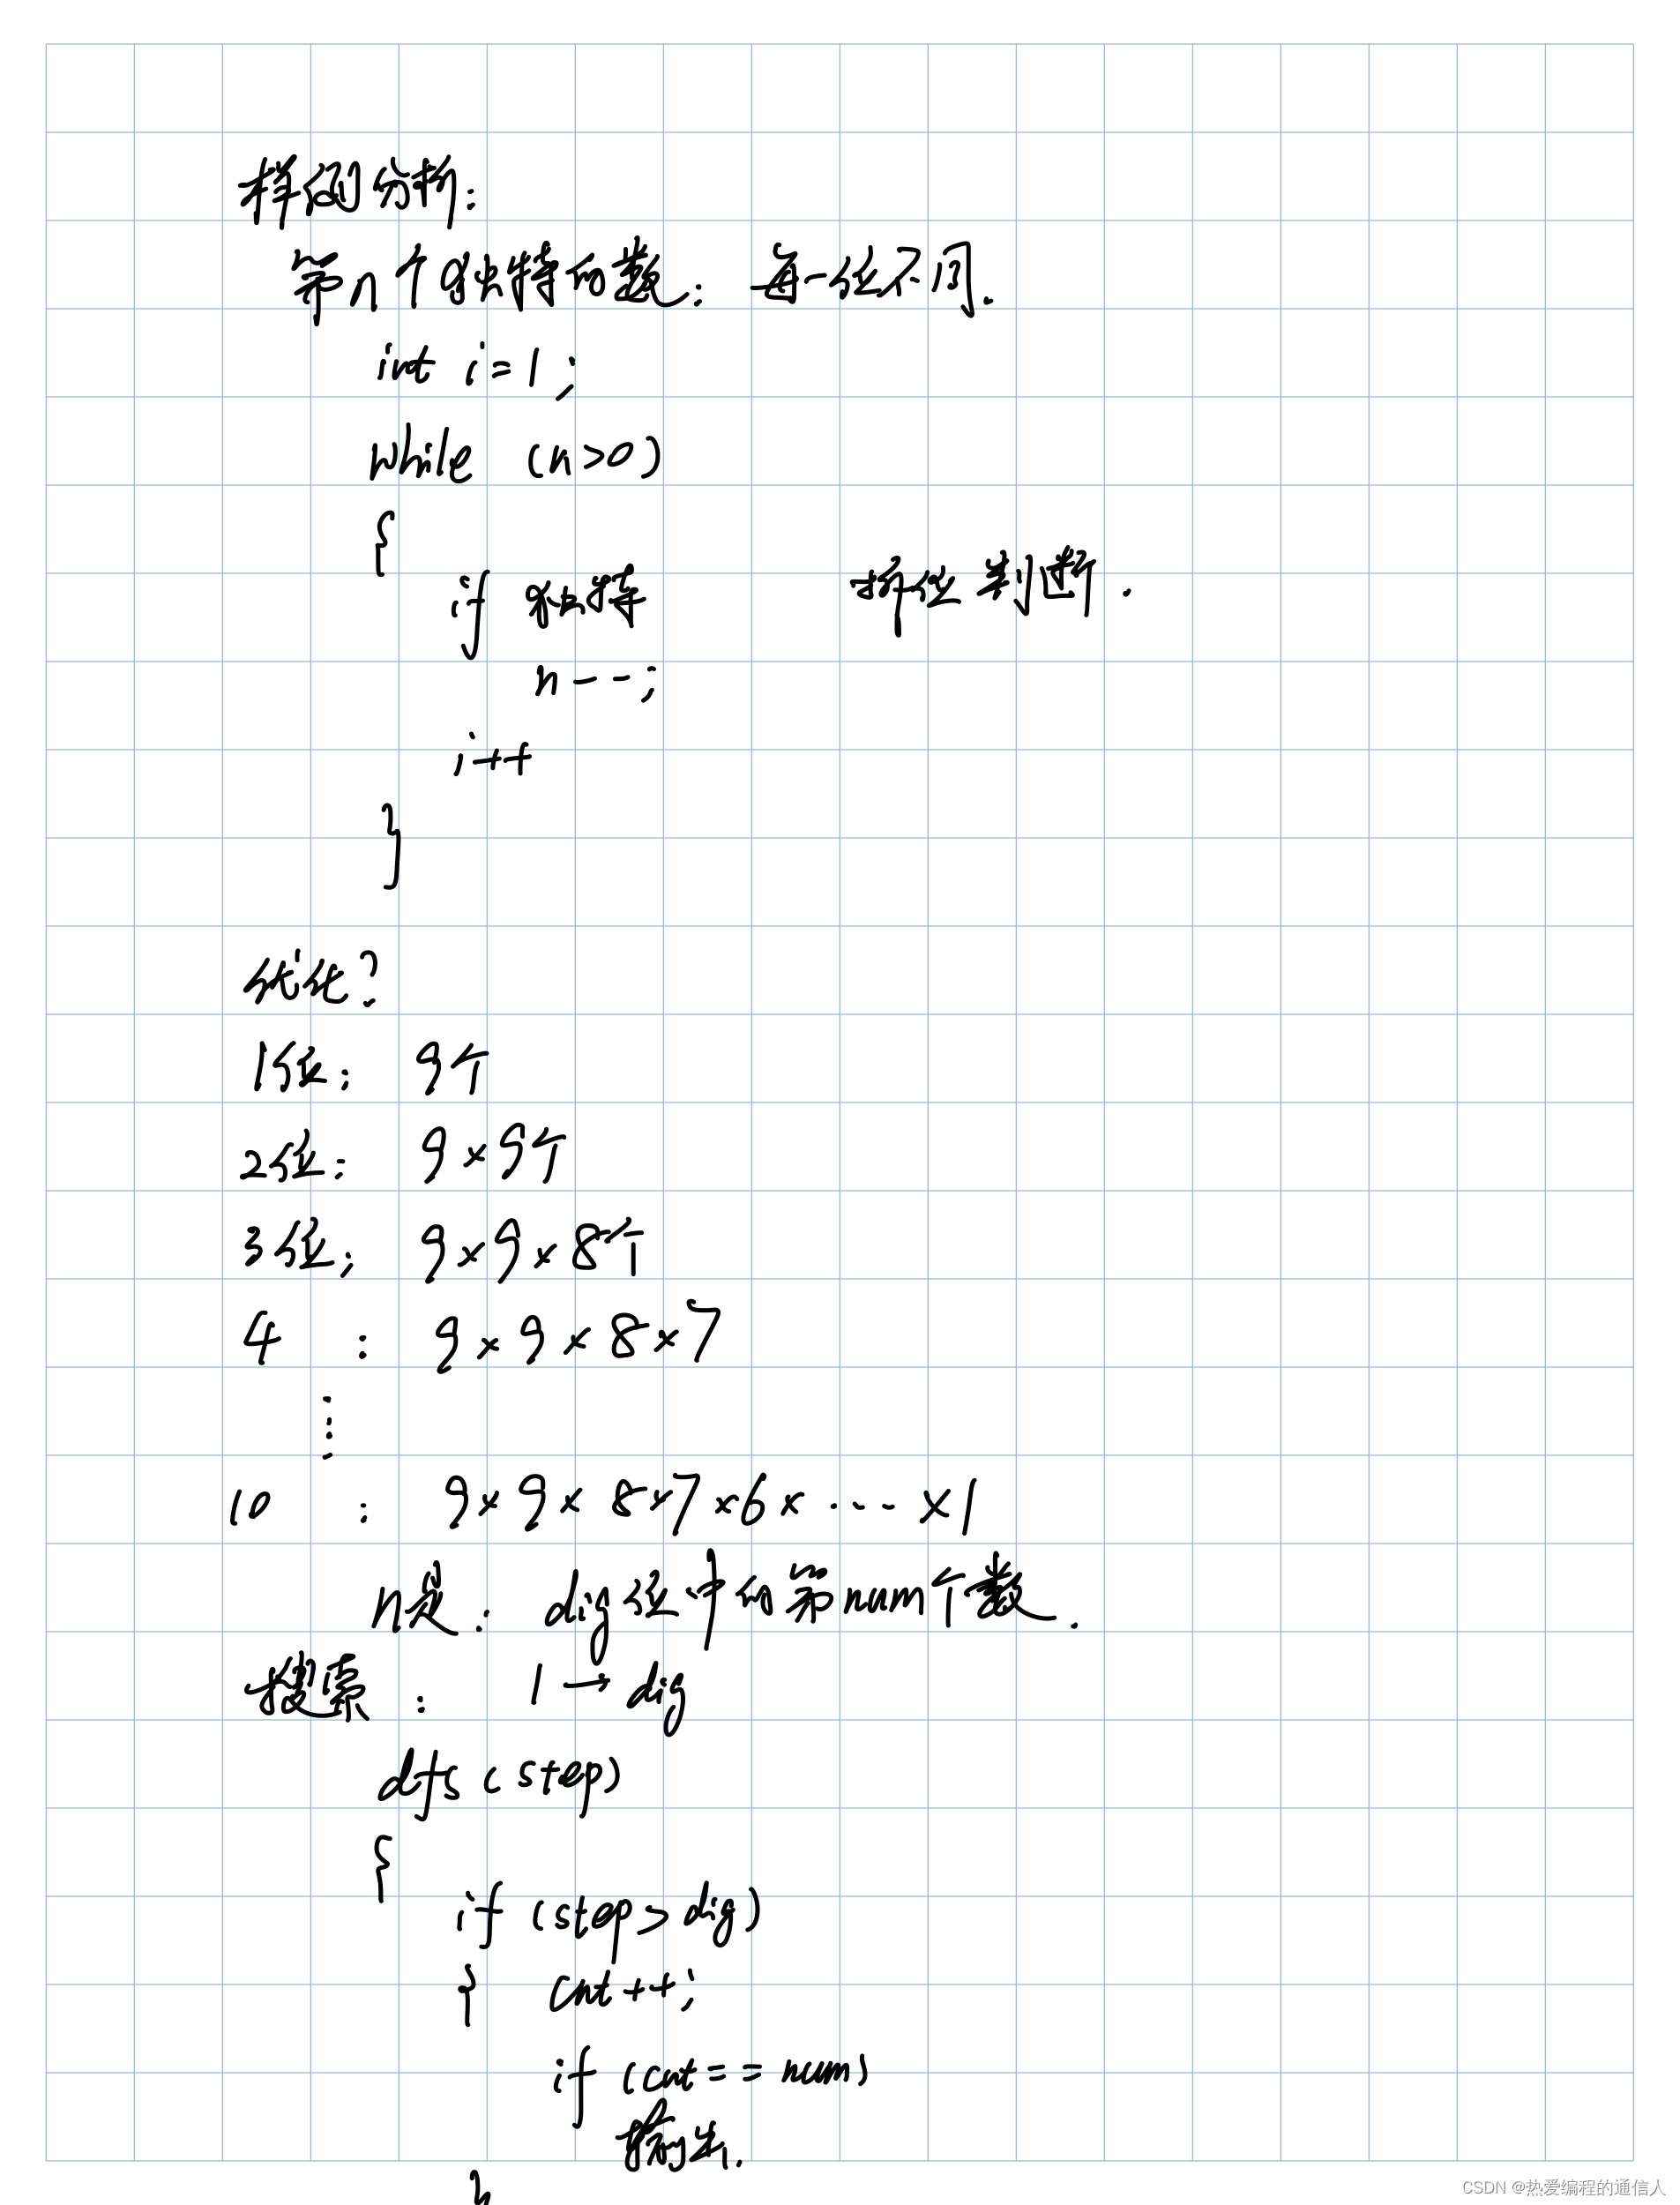 样例分析:
第n个独特的数: 每一位不同.
int i=1;
while (n>0)
{
if 独特 拆位判断.
n--;
i++
}
优化?
1位: 9个
2位: 9×9个
3位; 9×9×8个
4 : 9×9×8×7
⋮
10 : 9×9×8×7×6×...×1
n是: dig位中的第num个数.
搜索: 1→dig
dfs(step)
{
if (step>dig)
{ cnt++;
if (cnt==num)
输出.
}
CSDN @热爱编程的通信人